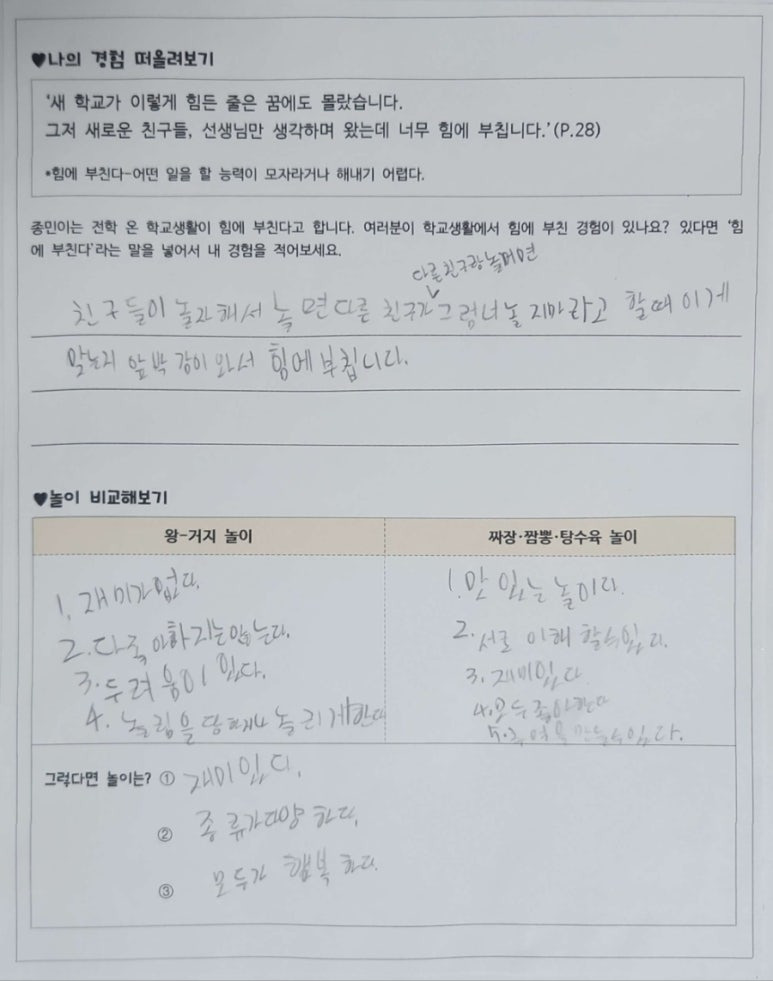 ♥나의 경험 떠올려보기
'새 학교가 이렇게 힘든 줄은 꿈에도 몰랐습니다.
그저 새로운 친구들, 선생님만 생각하며 왔는데 너무 힘에 부칩니다.'(P.28)
*힘에 부친다-어떤 일을 할 능력이 모자라거나 해내기 어렵다.
종민이는 전학 온 학교생활이 힘에 부친다고 합니다. 여러분이 학교생활에서 힘에 부친 경험이 있나요? 있다면 '힘
에 부친다'라는 말을 넣어서 내 경험을 적어보세요.
다른친구랑놀며면
친구들이 놀자해서 놀면다른 친구가그럼너놀지마라고 할때 이게
앞박 감이 와서 힘에부칩니다.
♥놀이 비교해보기
왕-거지 놀이
짜장·짬뽕·탕수육 놀이
1. 재미가없다.
2. 다
3. 두려움이 있다.
4. 놀림을 당하거나 놀리게한다
1. 맛 있는 놀이다.
2. 서로 이해 할수있다.
3. 재미있다.
4. 모두좋아한다
5. 추억을만들수있다.
그렇다면 놀이는? ① 재미있다.
② 종류가다양 하다.
③ 모두가 행복 하다.